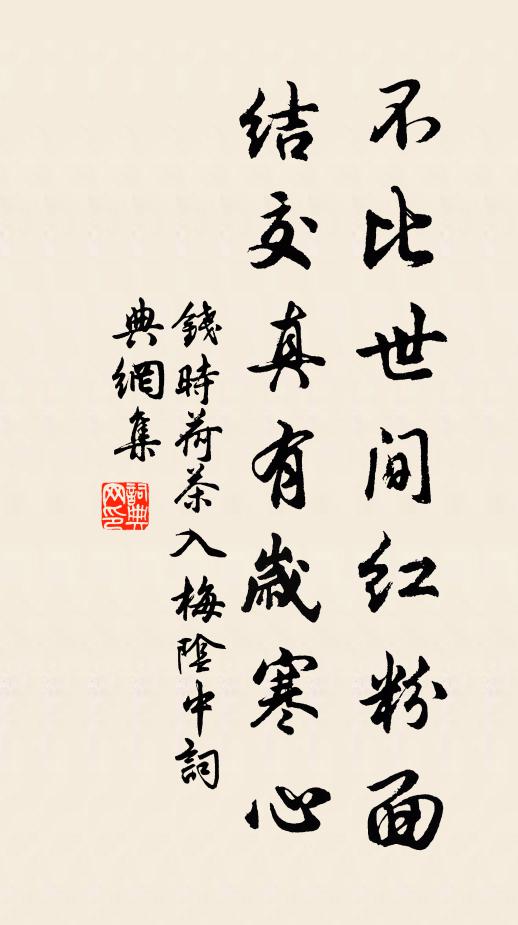 不比世间红粉面
结交真有歲寒心
錢時荷茶入梅陰中詞
典網集
詞典
网印